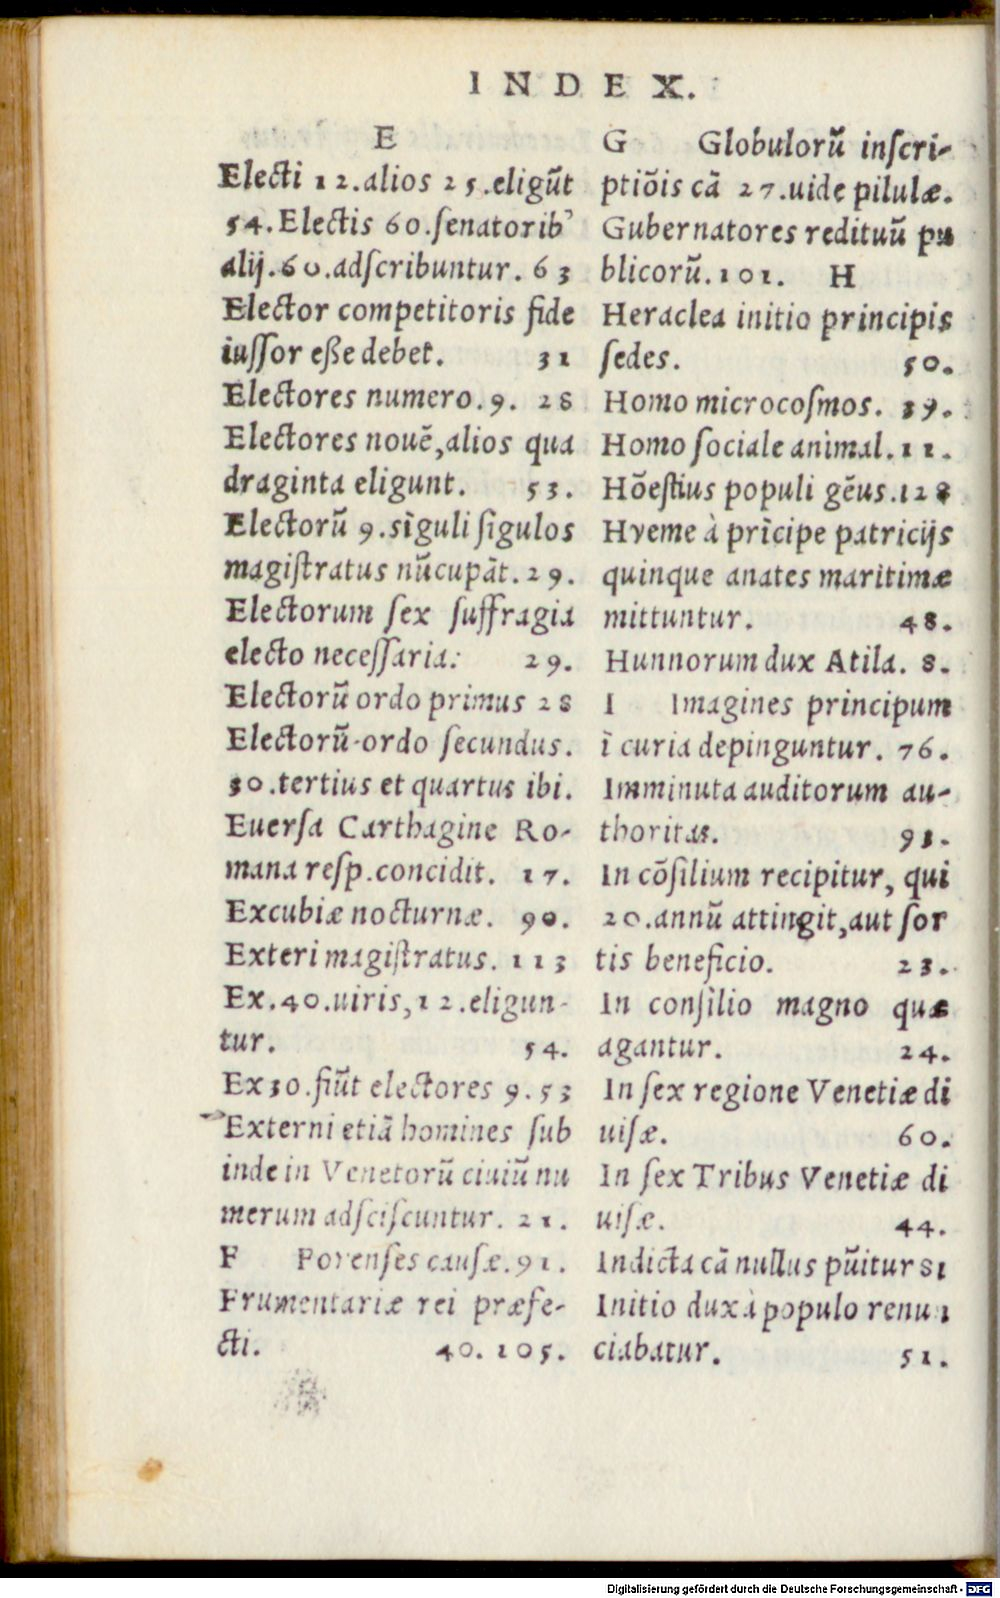 INDEX.
E
Electi 12.alios 25.eligũt
54.Electis 60.senatorib'
alij.60.adscribuntur. 63
Elector competitoris fide
iussor eße debet. 31
Electores numero.9. 28
Electores nouẽ,alios qua
draginta eligunt. 53.
Electorũ 9.sĩguli sĩgulos
magistratus nũcupãt.29.
Electorum sex suffragia
electo necessaria: 29.
Electorũ ordo primus 28
Electorũ ordo secundus.
30.tertius et quartus ibi.
Euersa Carthagine Ro-
mana resp.concidit. 17.
Excubiæ nocturnæ. 90.
Exteri magistratus. 113
Ex.40.uiris,12.eligun-
tur. 54.
Ex 30.fiũt electores 9.53
Externi etiã homines sub
inde in Venetorũ ciuiũ nu
merum adsciscuntur. 21.
F Forenses causæ.91.
Frumentariæ rei præfe-
cti. 40. 105.
G Globulorũ inscri-
ptiõis cã 27.uide pilulæ.
Gubernatores redituũ pu
blicorũ.101. H
Heraclea initio principis
sedes. 50.
Homo microcosmos. 39.
Homo sociale animal.11.
Hõestius populi gẽus.128
Hyeme à prĩcipe patricijs
quinque anates maritimæ
mittuntur. 48.
Hunnorum dux Atila. 8.
I Imagines principum
ĩ curia depinguntur. 76.
Imminuta auditorum au-
thoritas. 93.
In cõsilium recipitur, qui
20.annũ attingit,aut sor
tis beneficio. 23.
In consilio magno quæ
agantur. 24.
In sex regione Venetiæ di
uisæ. 60.
In sex Tribus Venetiæ di
uisæ. 44.
Indicta cã nullus pũitur 81
Initio dux à populo renu
ciabatur. 51.
Digitalisierung gefördert durch die Deutsche Forschungsgemeinschaft - DFG